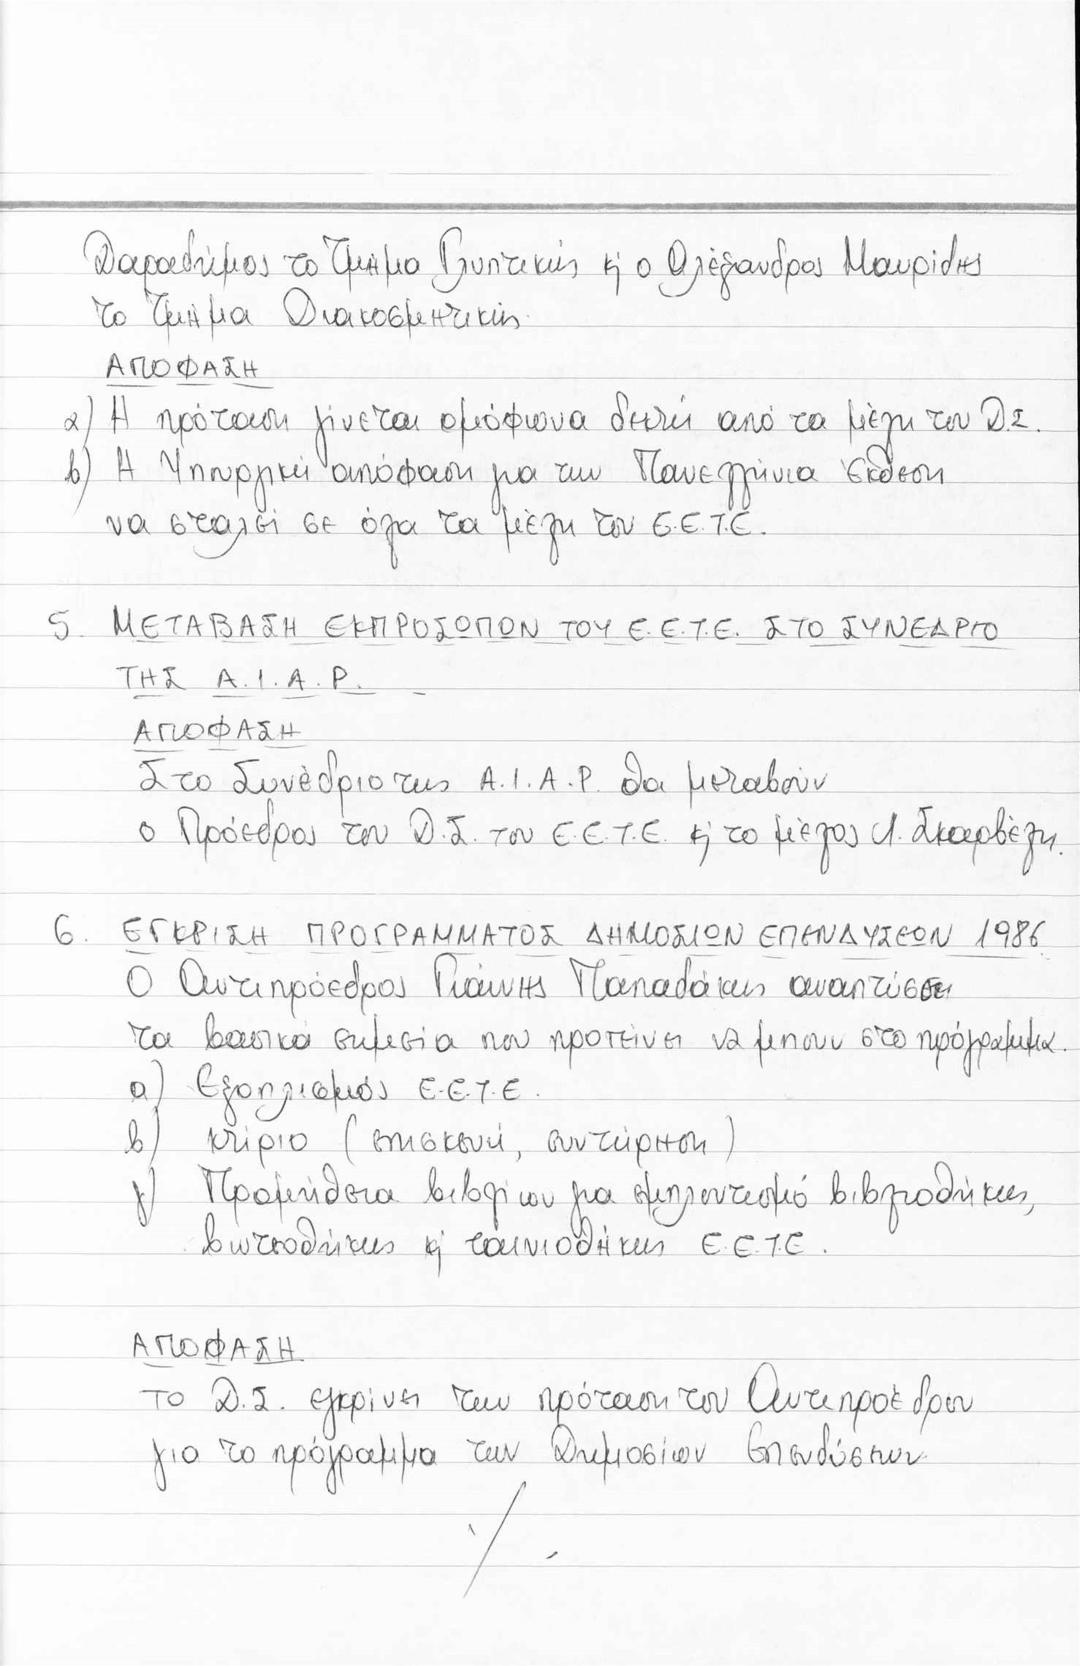 Παπαδήμος το Τμήμα Γλυπτικής κ' ο Αλέξανδρος Μαυρίδης
το Τμήμα Διακοσμητικής.
ΑΠΟΦΑΣΗ
α) Η πρόταση γίνεται ομόφωνα δεκτή από τα μέλη του Δ.Σ.
β) Η Υπουργική απόφαση για την Πανελλήνια Έκθεση
να σταλεί σε όλα τα μέλη του Ε.Ε.Τ.Ε.
5. ΜΕΤΑΒΑΣΗ ΕΚΠΡΟΣΩΠΩΝ ΤΟΥ Ε.Ε.Τ.Ε. ΣΤΟ ΣΥΝΕΔΡΙΟ
ΤΗΣ Α.Ι.Α.Ρ.
ΑΠΟΦΑΣΗ
Στο Συνέδριο της Α.Ι.Α.Ρ. θα μεταβούν
ο Πρόεδρος του Δ.Σ. του Ε.Ε.Τ.Ε. κ' το μέλος Λ. Σκαρβέλη.
6. ΕΓΚΡΙΣΗ ΠΡΟΓΡΑΜΜΑΤΟΣ ΔΗΜΟΣΙΩΝ ΕΠΕΝΔΥΣΕΩΝ 1986
Ο Αντιπρόεδρος Γιάννης Παπαδάκης αναπτύσσει
τα βασικά σημεία που προτείνει να μπουν στο πρόγραμμα.
α) Εξοπλισμός Ε.Ε.Τ.Ε.
β) κτίριο (επισκευή, συντήρηση)
γ) Προμήθεια βιβλίων για εμπλουτισμό βιβλιοθήκης,
βιντεοθήκης κ' ταινιοθήκης Ε.Ε.Τ.Ε.
ΑΠΟΦΑΣΗ
Το Δ.Σ. εγκρίνει την πρόταση του Αντιπροέδρου
για το πρόγραμμα των Δημοσίων Επενδύσεων